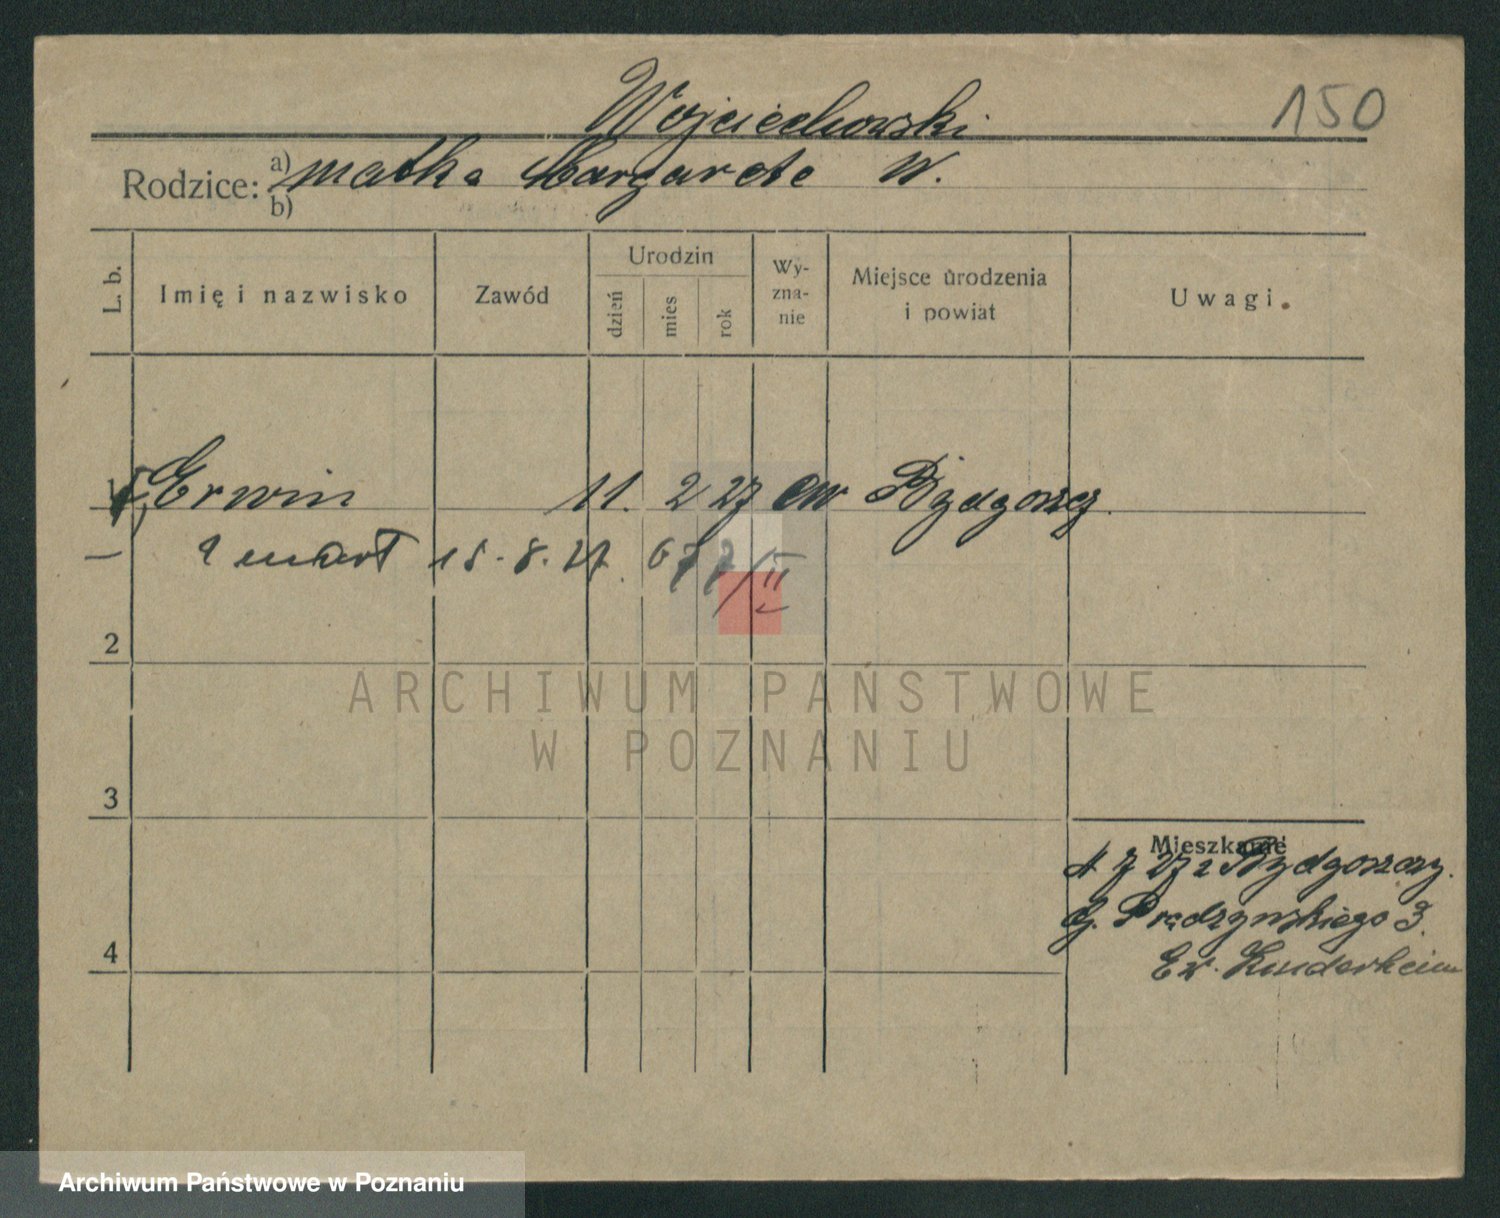 Wojciechowski
150
Rodzice: a) matka Margarete W.
b)
L. b.
Imię i nazwisko
Zawód
Urodzin
dzień
mies
rok
Wy-
zna-
nie
Miejsce urodzenia
i powiat
Uwagi.
1 Erwin 11. 2 27 ew Bydgoszcz
zmarł 15.8.27. 677/II
2
ARCHIWUM PAŃSTWOWE
W POZNANIU
3
Mieszkanie
7 27 z Bydgoszczy.
G. Prądzyńskiego 3.
Ew. Kinderheim
4
Archiwum Państwowe w Poznaniu